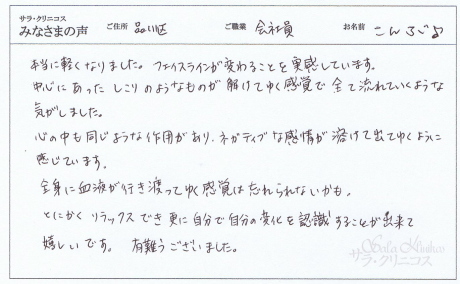 サラ・クリニコス
みなさまの声 ご住所 品川区 ご職業 会社員 お名前
本当に軽くなりました。フェイスラインが変わることを実感しています。
中心にあったしこりのようなものが解けてゆく感覚で全て流れていくような
気がしました。
心の中も同じような作用があり、ネガティブな感情が溶けて出てゆくように
感じています。
全身に血液が行き渡ってゆく感覚は忘れられないかも。
とにかくリラックスでき更に自分で自分の変化を認識することが出来て
嬉しいです。有難うございました。
Sara Klinikos
サラ・クリニコス